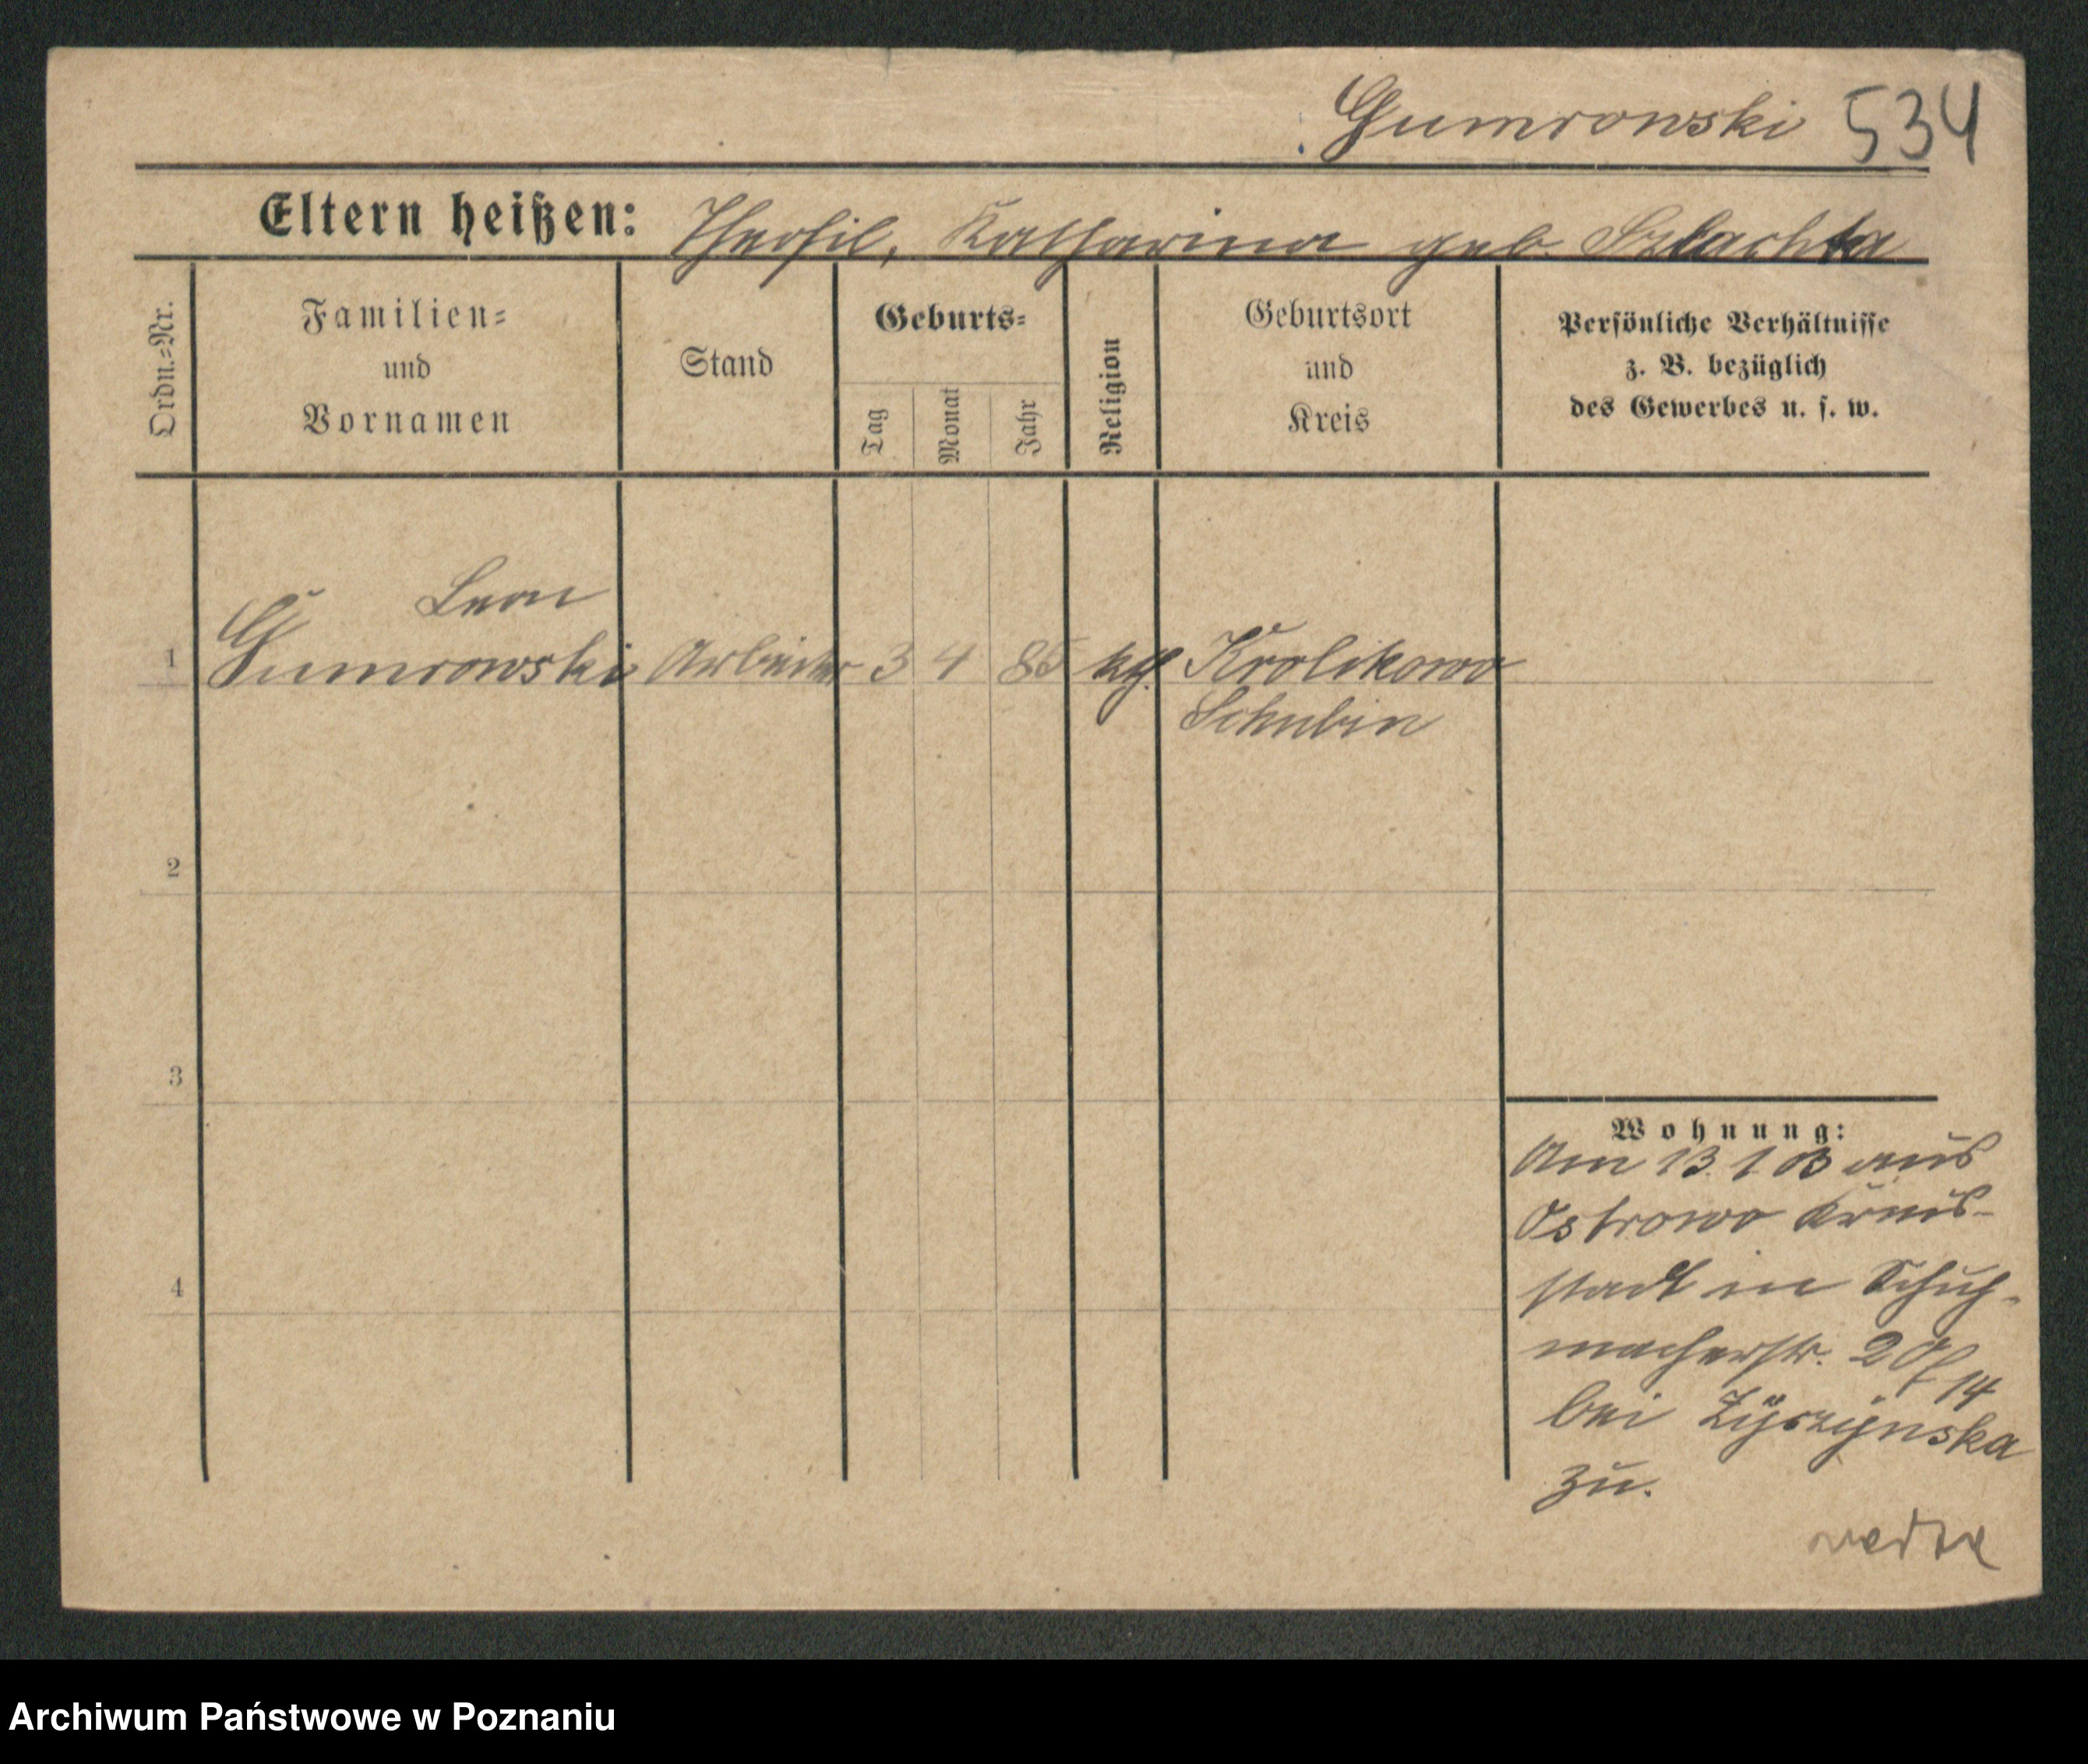 Gumrowski 534
Eltern heißen: Theofil, Katharina geb. Szlachta
Ordn.=Nr.
Familien=
und
Vornamen
Stand
Geburts=
Tag
Monat
Jahr
Religion
Geburtsort
und
Kreis
Persönliche Verhältnisse
z. B. bezüglich
des Gewerbes u. s. w.
Leon
1 Gumrowski Arbeiter 3 4 85 kth. Krolikowo
Schubin
2
3
4
Wohnung:
Am 13. 1 03 aus
Ostrowo Kreis-
stadt in Schuh-
macherstr. 20
14
bei Zyszynska
zu.
Archiwum Państwowe w Poznaniu